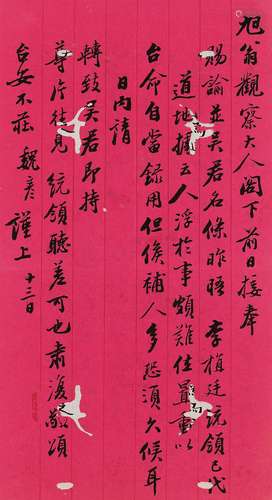 旭翁觀察大人閣下前日接奉
賜諭並吳君名條昨晤 李植廷統領已代
道地據云人浮於事頗難位置重以
台命自當錄用但候補人多恐須久候耳
日內請
轉致吳君即持
尊片往見 統領聽差可也肅復敬頌
台安不莊 魏彥謹上 十三日